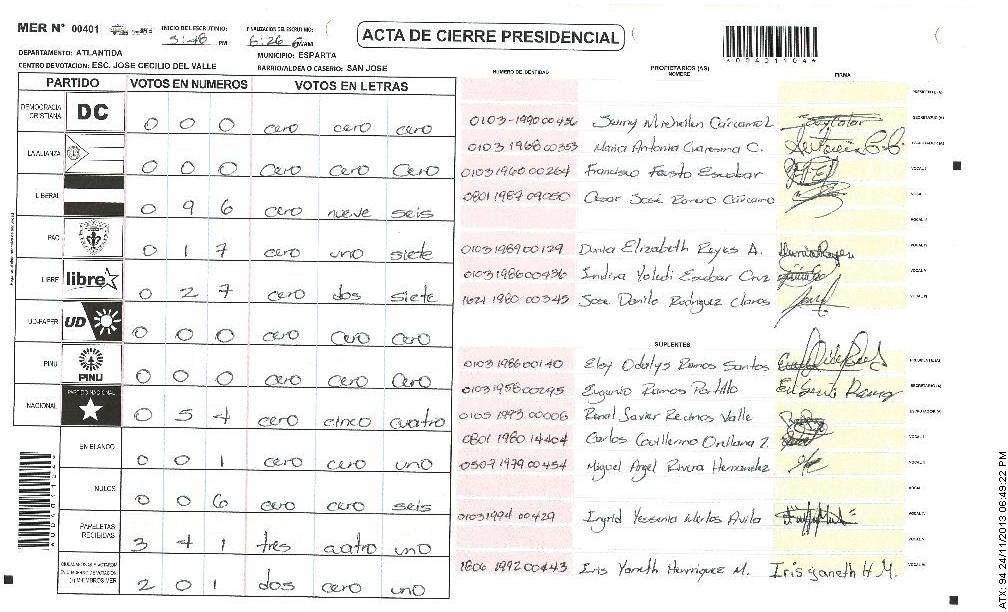 MER Nº 00401 INICIO DEL ESCRUTINIO: FINALIZACION DEL ESCRUTINIO:
5:48 PM 6:26 AM
ACTA DE CIERRE PRESIDENCIAL
*00401104*
DEPARTAMENTO: ATLANTIDA MUNICIPIO: ESPARTA
CENTRO DE VOTACION: ESC. JOSE CECILIO DEL VALLE BARRIO/ALDEA O CASERIO: SAN JOSE
PARTIDO VOTOS EN NUMEROS VOTOS EN LETRAS
DEMOCRACIA CRISTIANA DC 0 0 0 cero cero cero
LA ALIANZA 0 0 0 cero cero cero
LIBERAL 0 9 6 cero nueve seis
PAC 0 1 7 cero uno siete
LIBRE libre 0 2 7 cero dos siete
UD-FAPER UD 0 0 0 cero cero cero
PINU PINU 0 0 0 cero cero cero
NACIONAL PARTIDO NACIONAL 0 5 4 cero cinco cuatro
EN BLANCO 0 0 1 cero cero uno
NULOS 0 0 6 cero cero seis
PAPELETAS RECIBIDAS 3 4 1 tres cuatro uno
2 0 1 dos cero uno
NUMERO DE IDENTIDAD PROPIETARIOS (AS) NOMBRE FIRMA
PRESIDENTE (A)
0103-1990 00456 SECRETARIO (A)
0103 1968 00353 Maria Antonia C. ESCRUTADOR (A)
0103 1960 00264 Francisco Fausto Escobar VOCAL I
0801 1987 09050 Cesar José Romero Cárcamo VOCAL II
VOCAL III
0103 1989 00129 Dunia Elizabeth Reyes A. VOCAL IV
0103 1986 00436 Indira Yoledi Escobar Cruz VOCAL V
1621 1980 00345 Jose Danilo Rodriguez Claros VOCAL VI
SUPLENTES
0103 1986 00140 Elsy Odalys Ramos Santos PRESIDENTE (A)
0103 1956 00295 Eugenio Ramos Portillo SECRETARIO (A)
0105 1993 00006 Javier Recinos Valle ESCRUTADOR (A)
0801 1980 14404 Carlos Guillermo Orellana Z. VOCAL I
0507 1979 00454 Miguel Angel Rivera Hernandez VOCAL II
VOCAL
0103 1994 00429 Ingrid Yessenia Merlos Avila VOCAL IV
VOCAL V
1806 1992 00443 Iris Yaneth Henriquez M. Iris yaneth H.M. VOCAL VI
ATX: 94 24/11/2013 06:49:22 PM